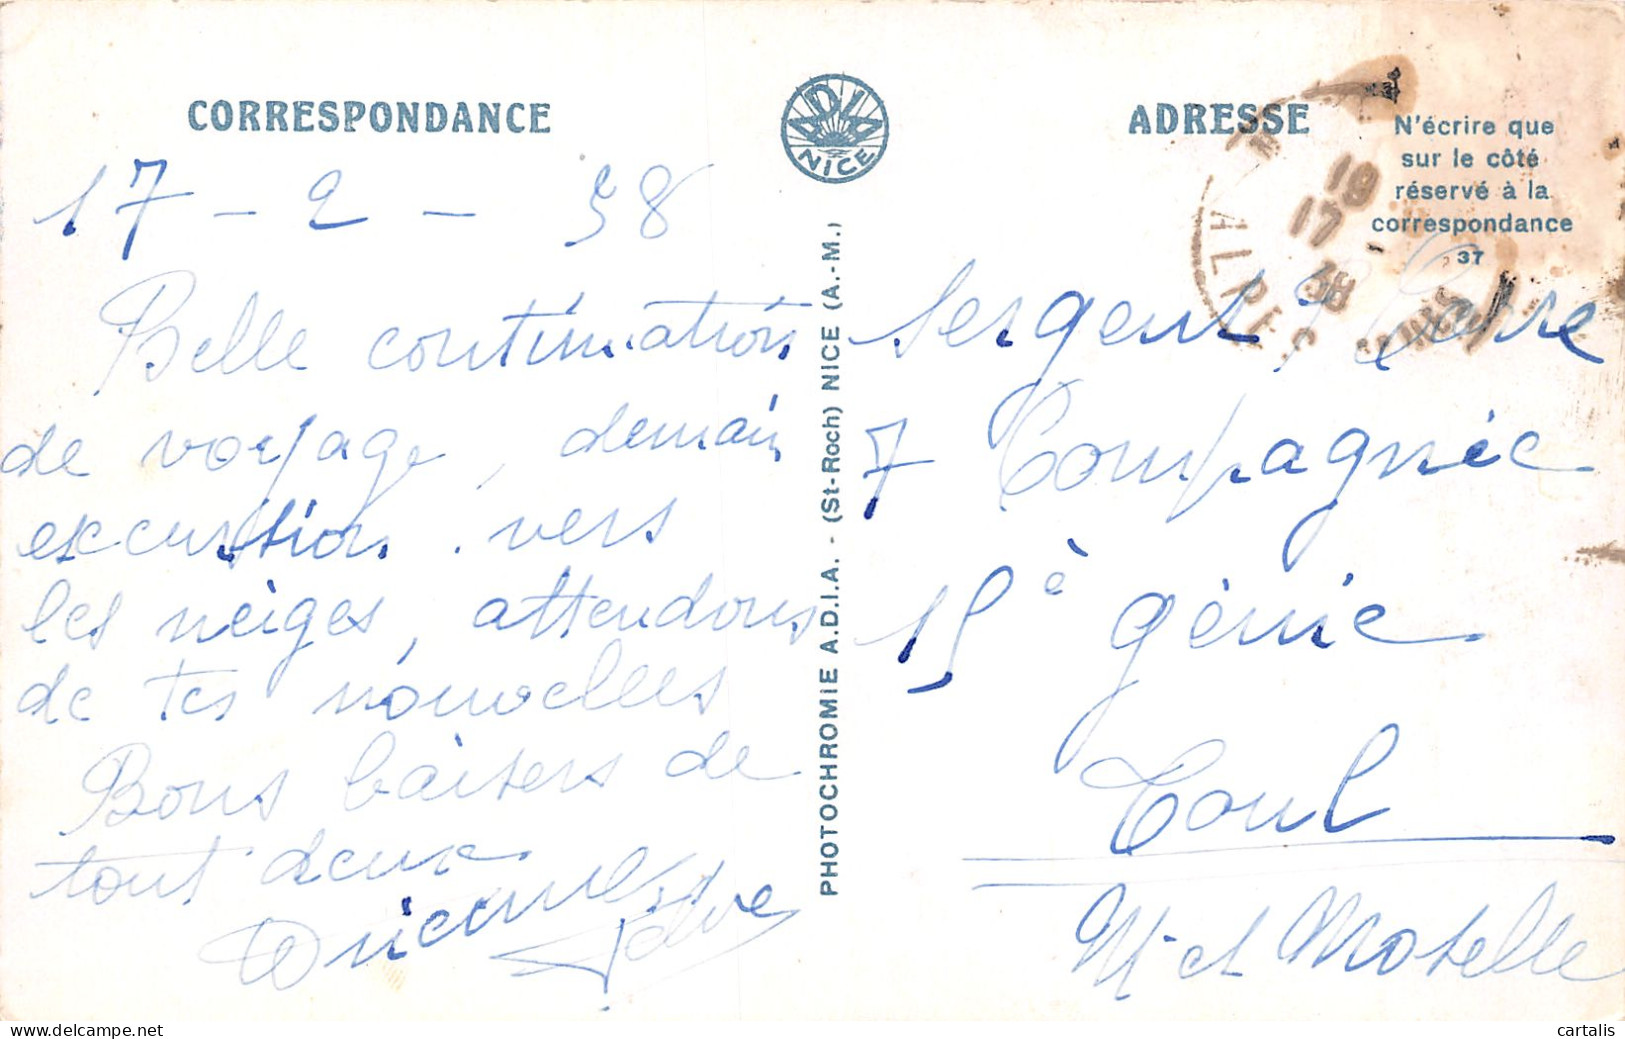 CORRESPONDANCE
17 - 2 - 38
Belle continuation
de voyage, demain
excursion vers
les neiges, attendons
de tes nouvelles
Bons baisers de
tout deux
ADIA
NICE
PHOTOCHROMIE A.D.I.A. - (St-Roch) NICE (A.-M.)
ADRESSE
N'écrire que
sur le côté
réservé à la
correspondance
37
ALPES
19
17 -
38
Sergent
7 Compagnie
15è génie
Toul
M. et Moselle
cartalis